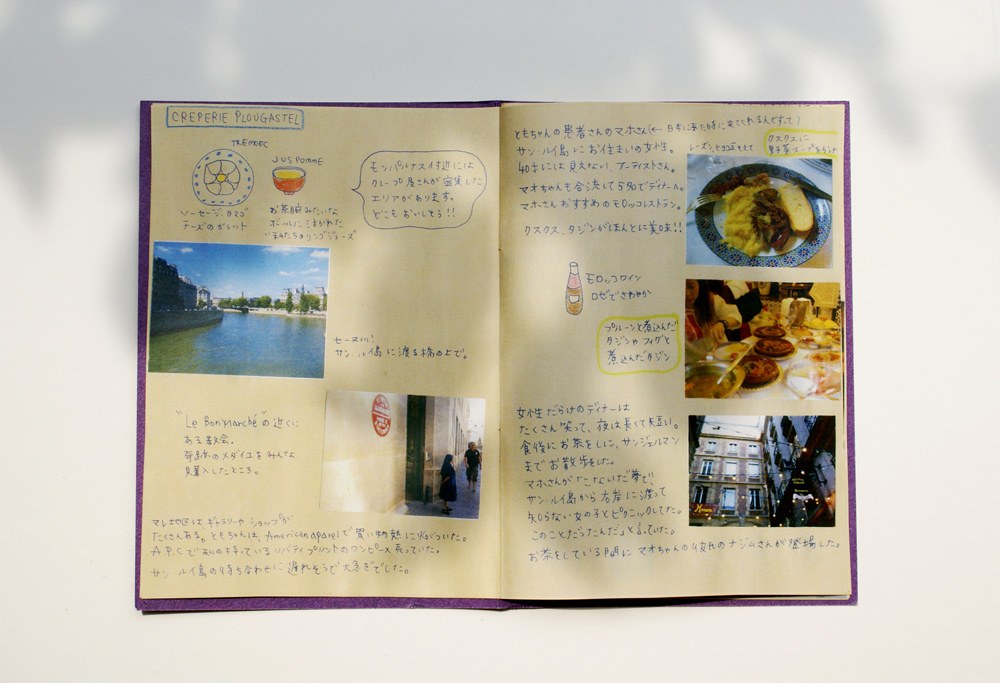 CREPERIE PLOUGASTEL
TREMORC
ソーセージ、タマゴ
チーズのガレット
JUS POMME
お茶碗みたいな
ボールに注がれた
リンゴジュース
モンパルナス付近には
クレープ屋さんが密集した
エリアがあります。
どこもおいしそう!!
セーヌ川!
サン・ルイ島に渡る橋の上で。
"Le Bon Marché"の近くに
ある教会。
奇跡のメダイユをみんな
購入したところ。
マレ地区はギャラリーやショップが
たくさんある。ともちゃんは、American aparelで買い物熱に火がついた。
A.P.Cで私の持っているリバティプリントのワンピース売っていた。
サン・ルイ島の待ち合わせに遅れそうで大急ぎでした。
ともちゃんの患者さんのマホさん(← 日本に来た時に来てくれるんですって)
サン・ルイ島にお住まいの女性。
40才にしか見えない、アーティストさん。
マオちゃんも合流して5名でディナーへ。
マホさんおすすめのモロッコレストラン。
クスクス、タジンがほんとに美味!!
クスクスに
野菜スープをかけ
モロッコワイン
ロゼでさわやか
プルーンと煮込んだ
タジンやフィグと
煮込んだタジン
女性だらけのディナーは
たくさん笑って、夜は長くて短い。
食後にお茶をしに、サンジェルマン
までお散歩をした。
マホさんが「こないだ夢で、
サン・ルイ島から右岸に渡って
知らない女の子とピクニックしてた。
このことだったんだ」と言っていた。
お茶をしている間にマオちゃんの彼氏のナジムさんが登場した。